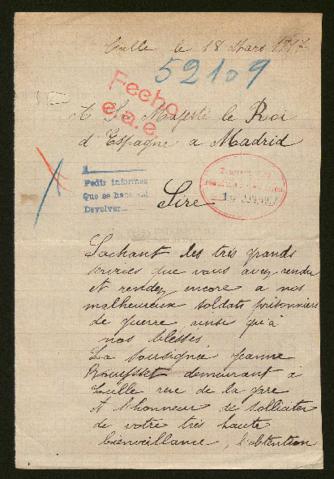 Tulle le 18 Mars 1917
52109
Fecho
e.a.e.
A Sa Majesté le Roi
d'Espagne a Madrid
A
Pedir informes
Que se ha
Devolver
Sire
Sachant les très grands
services que vous avez rendu
et rendez encore a nos
malheureux soldats prisonniers
de guerre ainsi qu'à
nos blessés
La soussignée Jeanne
demeurant à
Tulle rue de la gare
A l'honneur de solliciter
de votre très haute
bienveillance, l'obtention